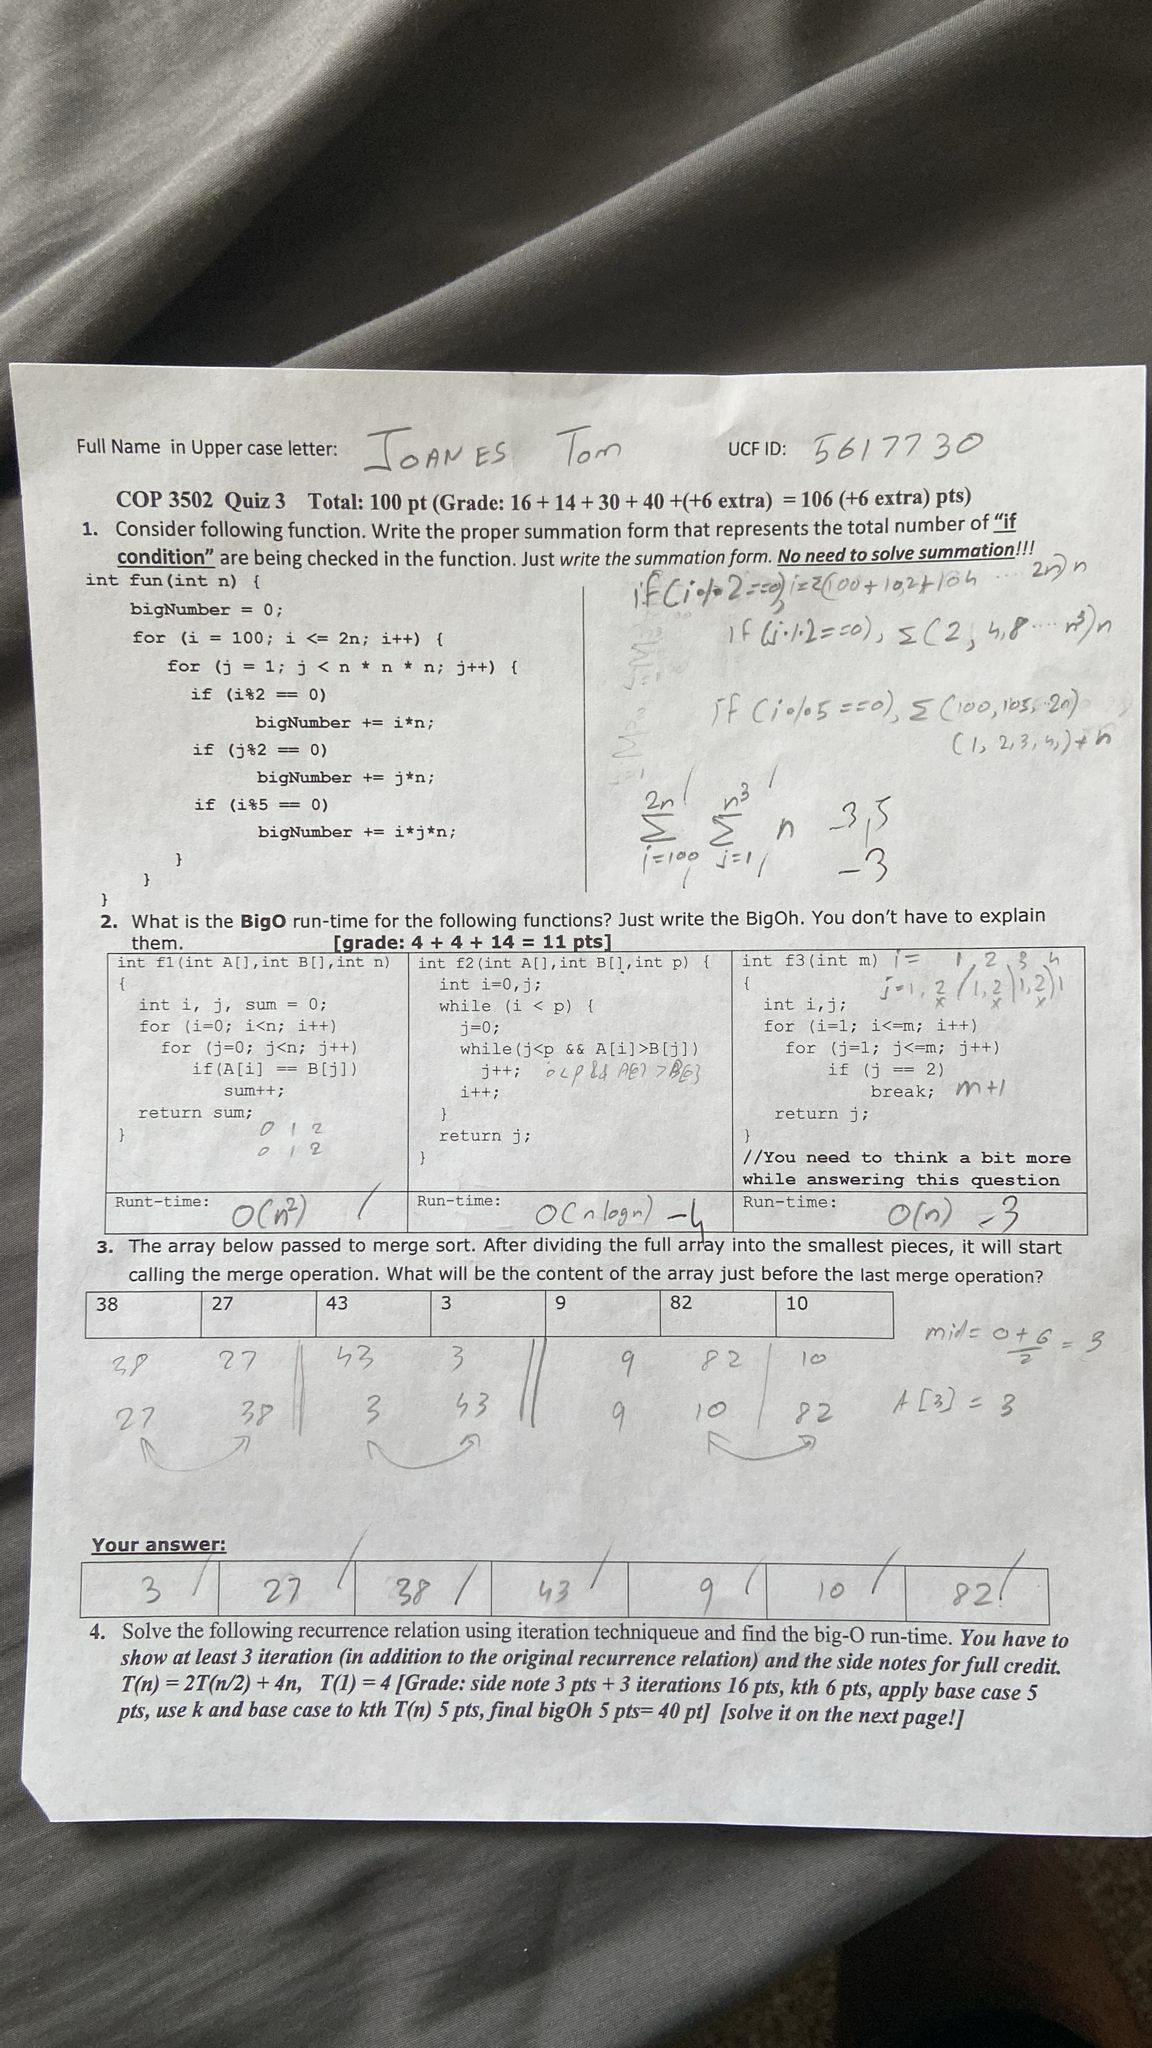 Full Name in Upper case letter: JOANES Tom UCF ID: 5617730
COP 3502 Quiz 3 Total: 100 pt (Grade: 16 + 14 + 30 + 40 +(+6 extra) = 106 (+6 extra) pts)
1. Consider following function. Write the proper summation form that represents the total number of “if
condition” are being checked in the function. Just write the summation form. No need to solve summation!!!
int fun(int n) {
bigNumber = 0;
for (i = 100; i <= 2n; i++) {
for (j = 1; j < n * n * n; j++) {
if (i%2 == 0)
bigNumber += i*n;
if (j%2 == 0)
bigNumber += j*n;
if (i%5 == 0)
bigNumber += i*j*n;
}
}
}
if (i%2==0) 2n)n
if (j%2==0), Σ(2, 4,8 ... n³)n
if (i%5==0), Σ(100,105, 2n)
(1, 2,3,4,)+n
2n n³
Σ Σ n -3,5
i=100 j=1 -3
2. What is the BigO run-time for the following functions? Just write the BigOh. You don't have to explain
them. [grade: 4 + 4 + 14 = 11 pts]
int f1(int A[],int B[],int n)
{
int i, j, sum = 0;
for (i=0; i<n; i++)
for (j=0; j<n; j++)
if(A[i] == B[j])
sum++;
return sum;
}
0 1 2
0 1 2
Runt-time: O(n²)
int f2(int A[],int B[],int p) {
int i=0,j;
while (i < p) {
j=0;
while(j<p && A[i]>B[j])
j++; 0<p && A[0]>B[0]
i++;
}
return j;
}
Run-time: O(n logn) -4
int f3(int m) i= 1, 2 3 4
{ j=1, 2 / 1, 2 | 1, 2 | 1
x x x
int i,j;
for (i=1; i<=m; i++)
for (j=1; j<=m; j++)
if (j == 2)
break; m+1
return j;
}
//You need to think a bit more
while answering this question
Run-time: O(n) -3
3. The array below passed to merge sort. After dividing the full array into the smallest pieces, it will start
calling the merge operation. What will be the content of the array just before the last merge operation?
38 27 43 3 9 82 10
mid= 0+6/2 = 3
38 27 43 3 9 82 10
27 38 3 43 9 10 82 A[3] = 3
Your answer:
3 27 38 43 9 10 82
4. Solve the following recurrence relation using iteration techniqueue and find the big-O run-time. You have to
show at least 3 iteration (in addition to the original recurrence relation) and the side notes for full credit.
T(n) = 2T(n/2) + 4n, T(1) = 4 [Grade: side note 3 pts + 3 iterations 16 pts, kth 6 pts, apply base case 5
pts, use k and base case to kth T(n) 5 pts, final bigOh 5 pts= 40 pt] [solve it on the next page!]